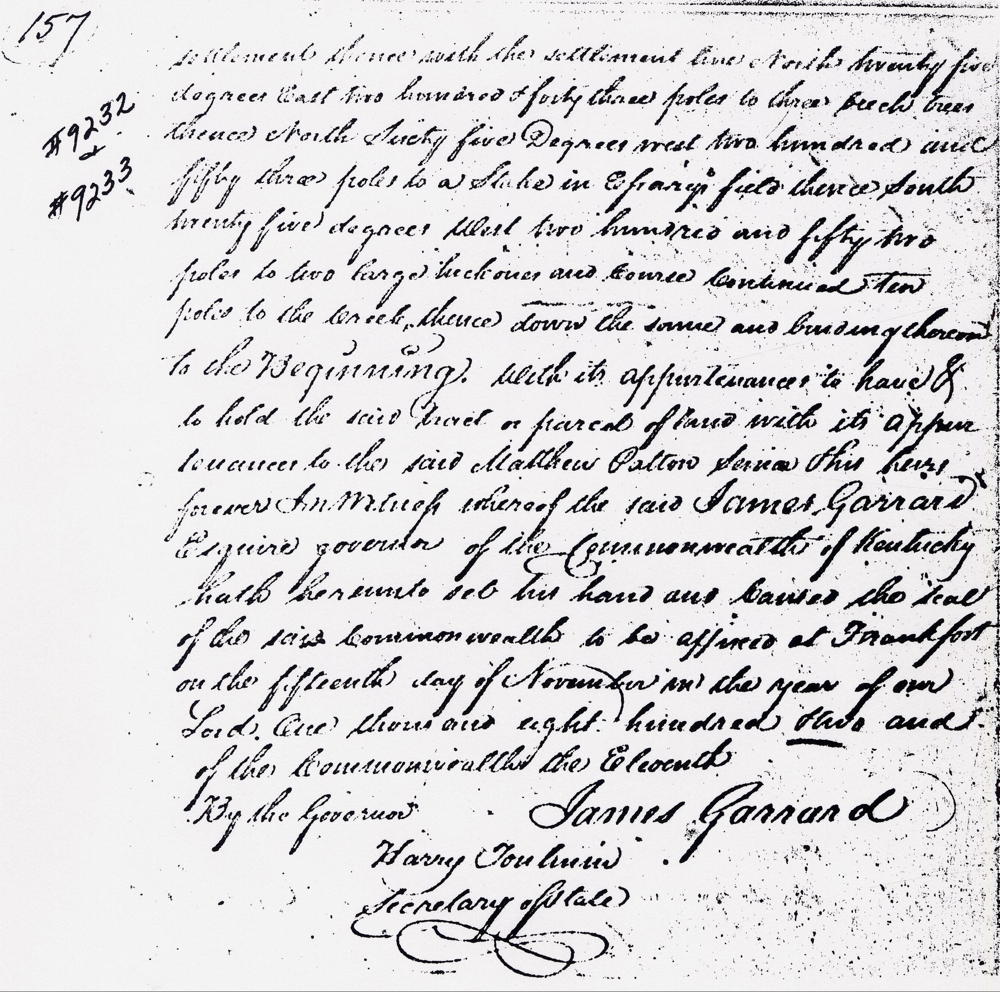 157
#9232
&
#9233
settlement thence with the settlement line North twenty five
degrees East two hundred & forty three poles to three beech trees
thence North Sixty five Degrees west two hundred and
fifty three poles to a Stake in field thence South
twenty five degrees West two hundred and fifty two
poles to two large hickories and Course Continued ten
poles to the Creek, thence down the same and binding thereon
to the Beginning. With its appurtenances to have &
to hold the said tract or parcel of land with its appur
tenances to the said Matthew Patton Senior & his heirs
forever In Witness whereof the said James Garrard
Esquire governor of the Commonwealth of Kentucky
hath hereunto set his hand and Caused the seal
of the said Commonwealth to be affixed at Frankfort
on the fifteenth day of November in the year of our
Lord. One thousand eight hundred & two and
of the Commonwealth the Eleventh
By the Governor James Garrard
Harry Toulmin
Secretary of State